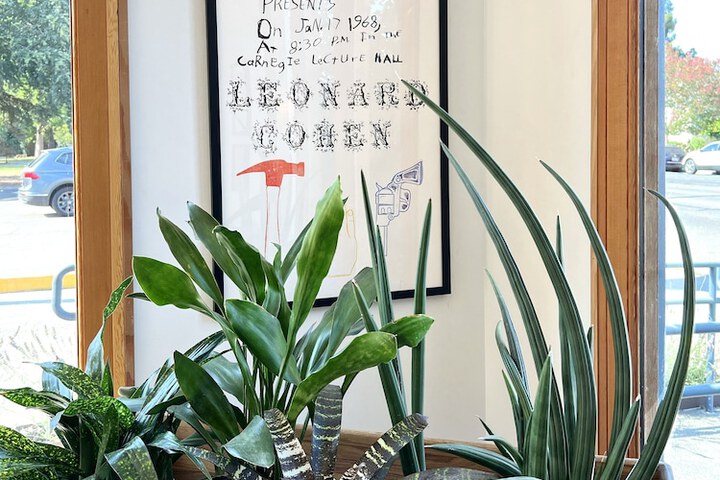 PRESENTS
On JaN. 17 1968,
At 8:30 P.M In the
CaRnEgIe LeCtUrE HALL
LEONARD
COHEN